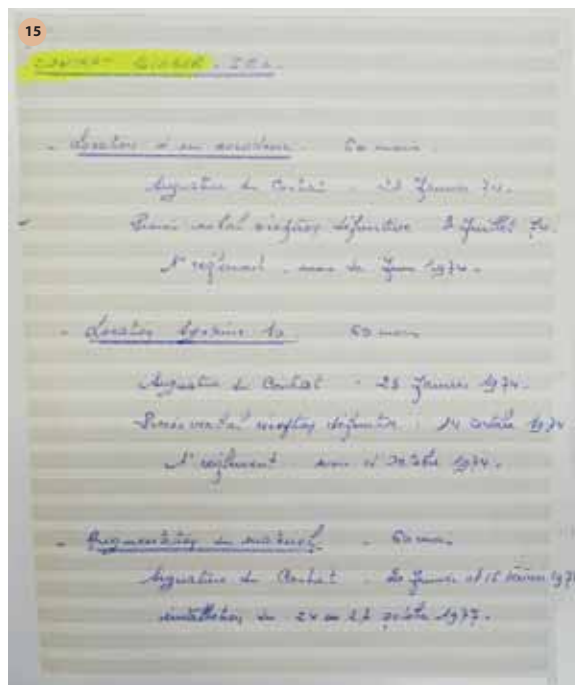 15
CONTRAT
- Location d'un 60 mois
Signature du Contrat - 28 Janvier 74.
Procès verbal réception définitive 3 Juillet 74.
1er règlement - mois de Juin 1974.
- Location Système 10 60 mois
Signature du Contrat - 28 Janvier 1974.
Procès verbal réception définitive : 14 Octobre 1974
1er règlement mois d'Octobre 1974.
- Augmentation du matériel - 60 mois
Signature du Contrat - 20 Janvier et 15
installation du 24 au 27 octobre 1977.